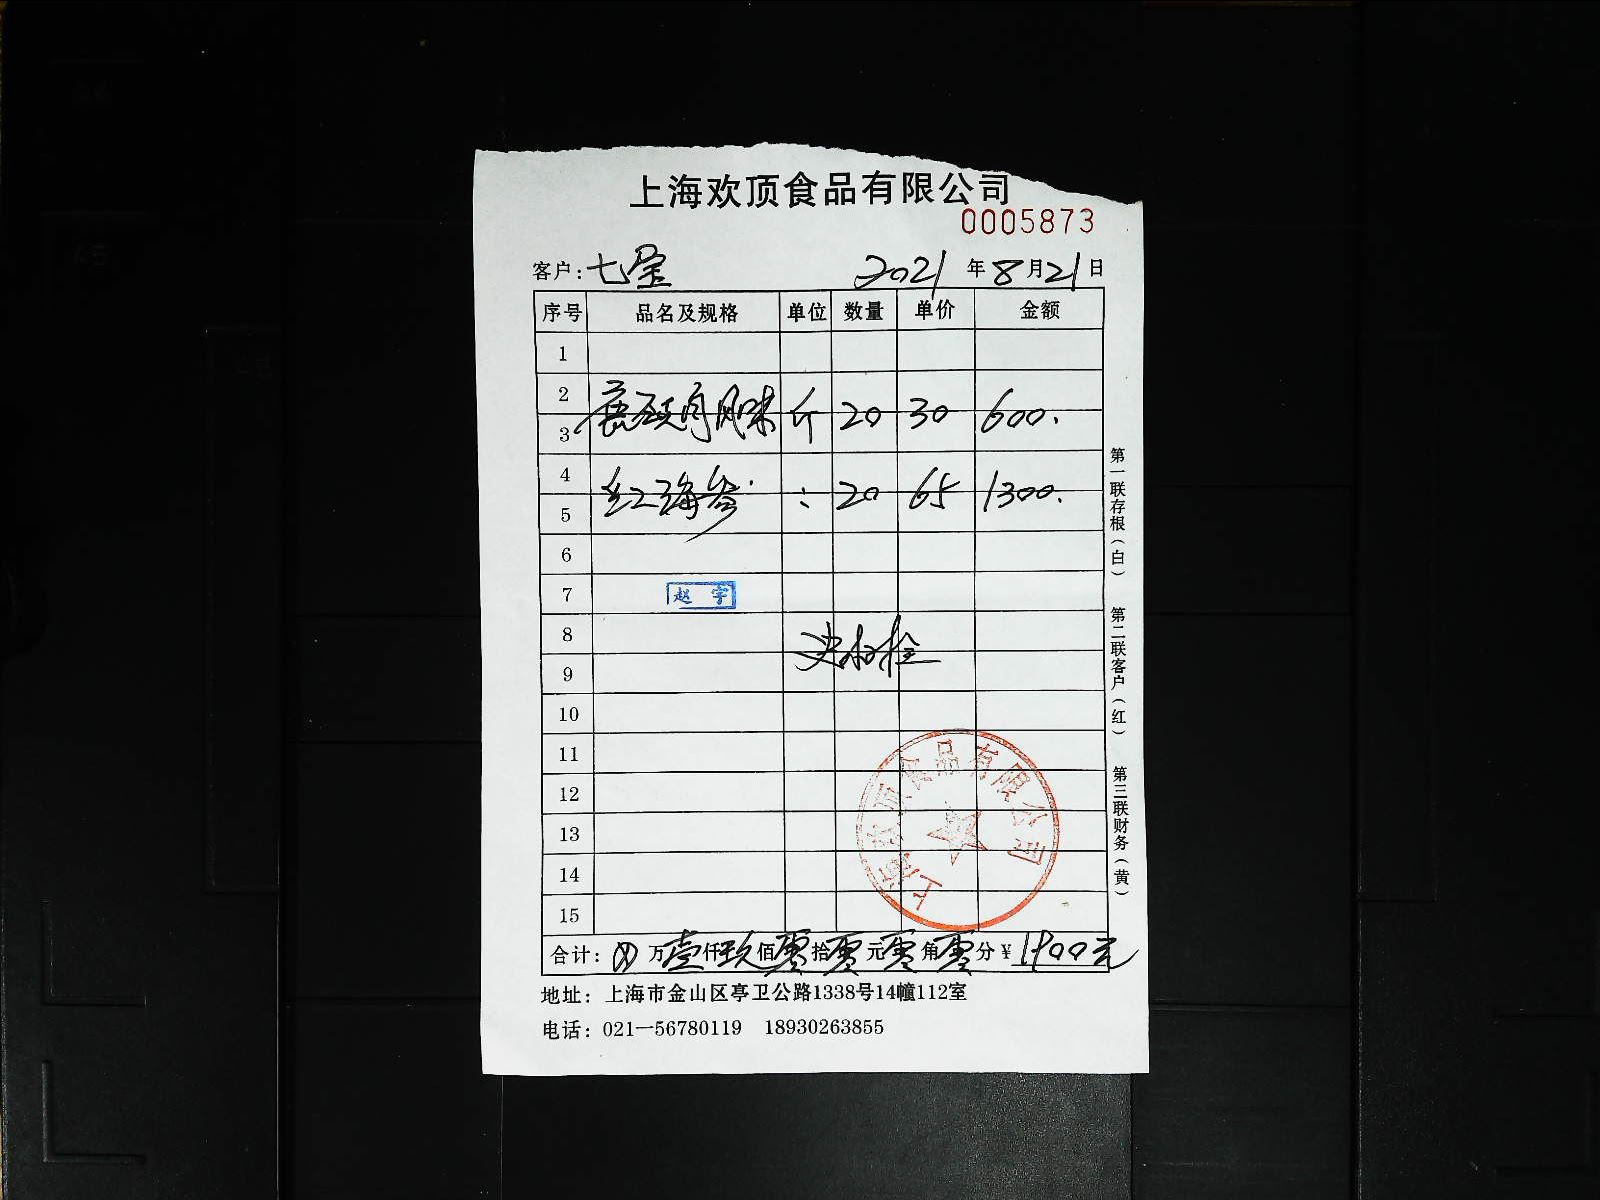 上海欢顶食品有限公司
0005873
客户:七宝 2021年8月21日
序号 品名及规格 单位 数量 单价 金额
1
2
3 肉风味 斤 20 30 600.
4
5 红海参 : 20 65 1300.
6
7 赵宇
8
9
10
11
12
13
14
15
上海欢顶食品有限公司
合计: 万壹仟玖佰零拾零元零角零分¥1900元
地址: 上海市金山区亭卫公路1338号14幢112室
电话: 021—56780119 18930263855
第一联存根(白) 第二联客户(红) 第三联财务(黄)